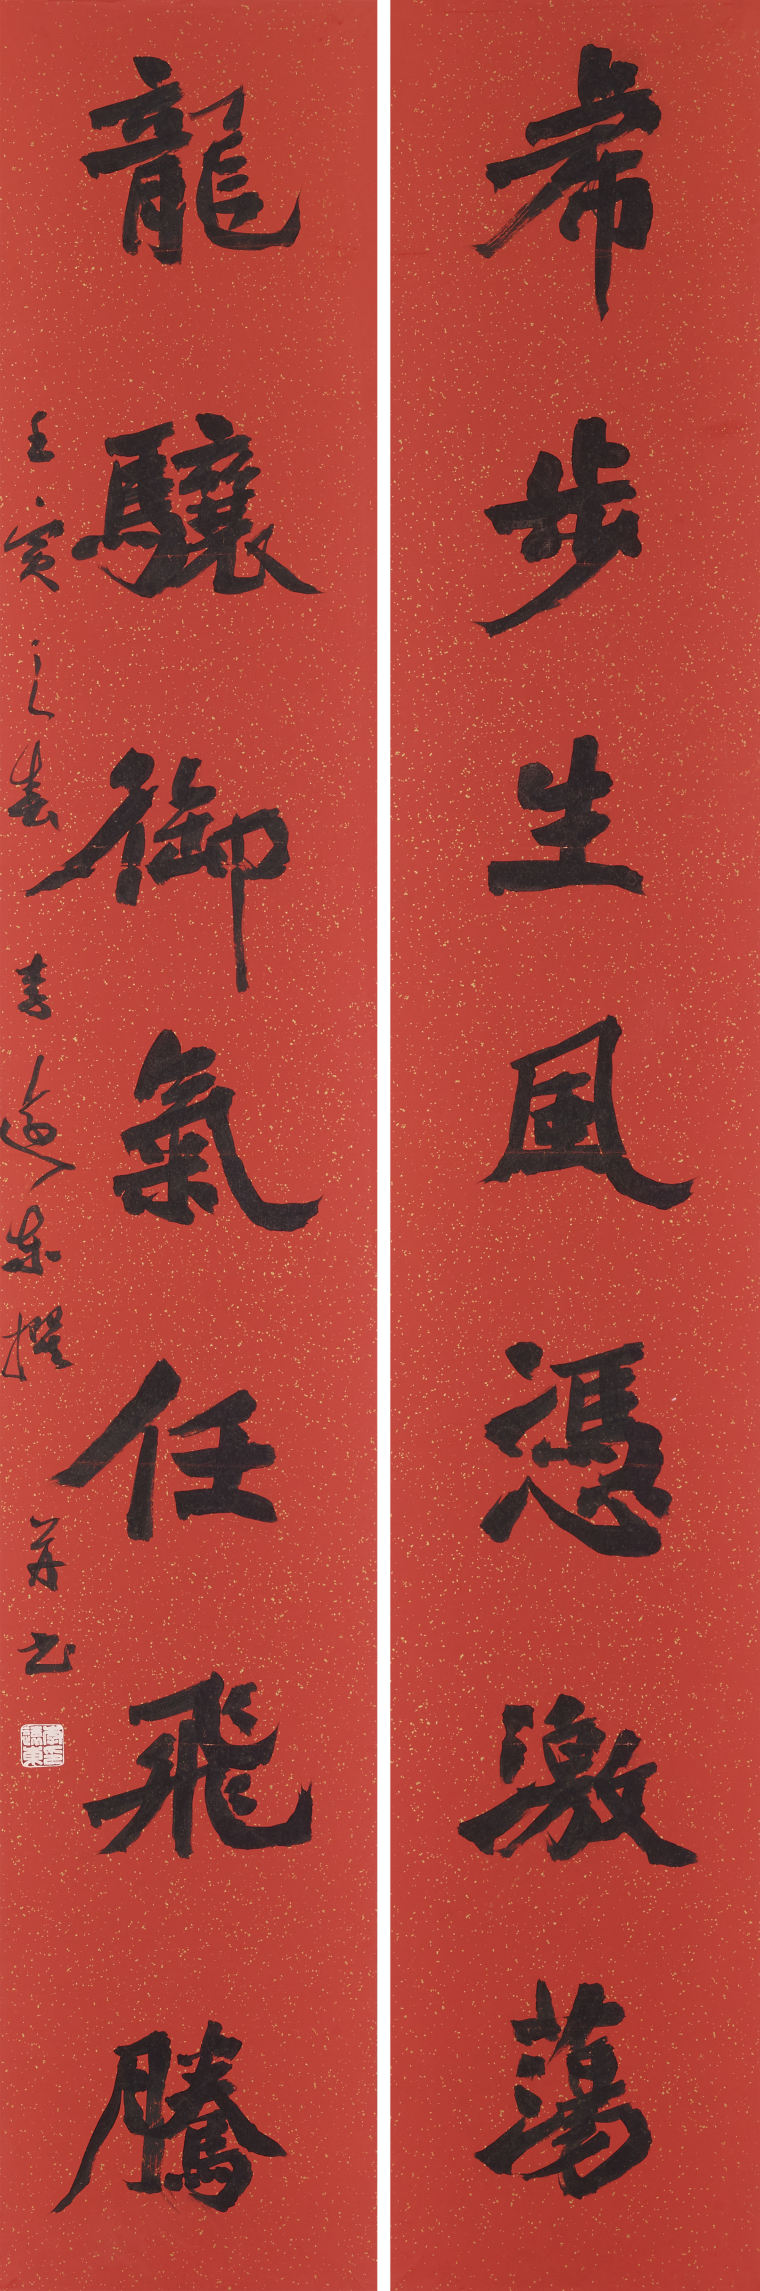 虎步生風憑激蕩
龍驤御氣任飛騰
壬寅之春 李東撰 并书